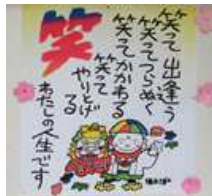 笑
笑って出逢う
笑ってつらぬく
笑ってかかわる
笑って
やりとげる
わたしの人生です